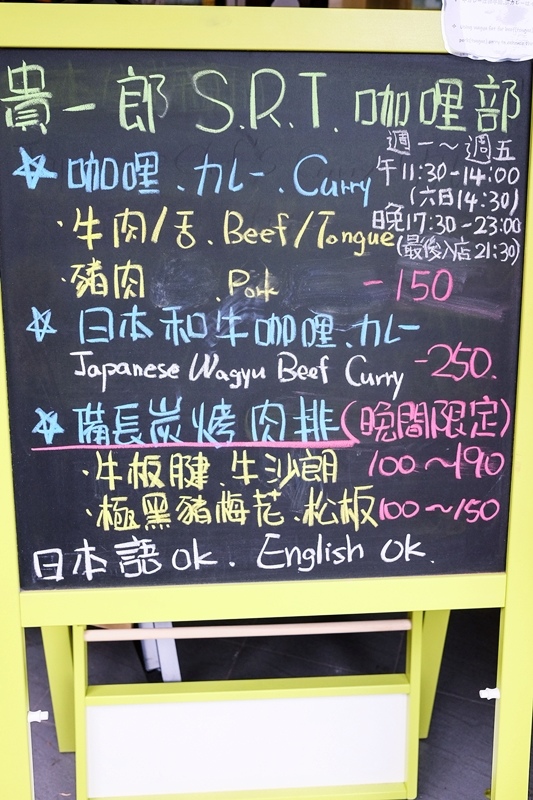 貴一郎 S.R.T. 咖哩部
週一～週五
午11:30-14:00
(六日14:30)
晚17:30-23:00
(最後入店21:30)
咖哩、カレー、Curry
·牛肉/舌、Beef/Tongue
·豬肉 、Pork -150
日本和牛咖哩、カレー
Japanese Wagyu Beef Curry -250.
備長炭烤肉排(晚間限定)
·牛板腱、牛沙朗 100~190
·極黑豬梅花、松板 100~150
日本語ok. English OK.